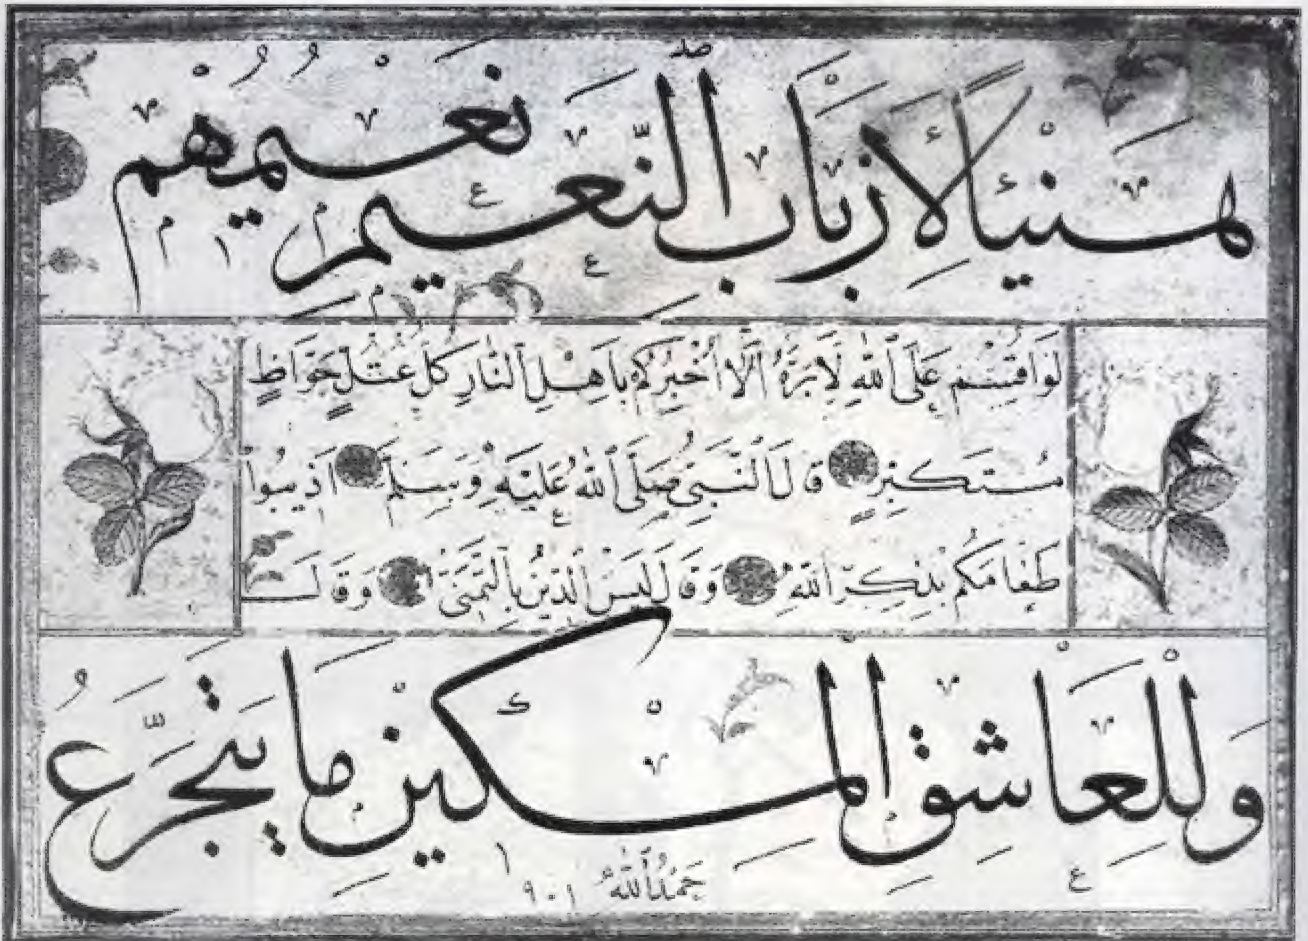 هَنِيئًا لِأَرْبَابِ النَّعِيمِ نَعِيمُهُمْ
لَوْ اَقْسَمَ عَلَى اللّٰهِ لَاَبَرَّهُ اَلَا اُخْبِرُكُمْ بِاَهْلِ النَّارِ كُلُّ عُتُلٍّ جَوَّاظٍ
مُسْتَكْبِرٍ قَالَ النَّبِيُّ صَلَّى اللّٰهُ عَلَيْهِ وَسَلَّمَ اَذِيبُوا
طَعَامَكُمْ بِذِكْرِ اللّٰهِ وَقَالَ لَيْسَ الدِّينُ بِالتَّمَنِّي وَقَالَ
وَلِلْعَاشِقِ الْمِسْكِينِ مَا يَتَجَرَّعُ
حَمْدُ اللّٰهِ
٩٠١